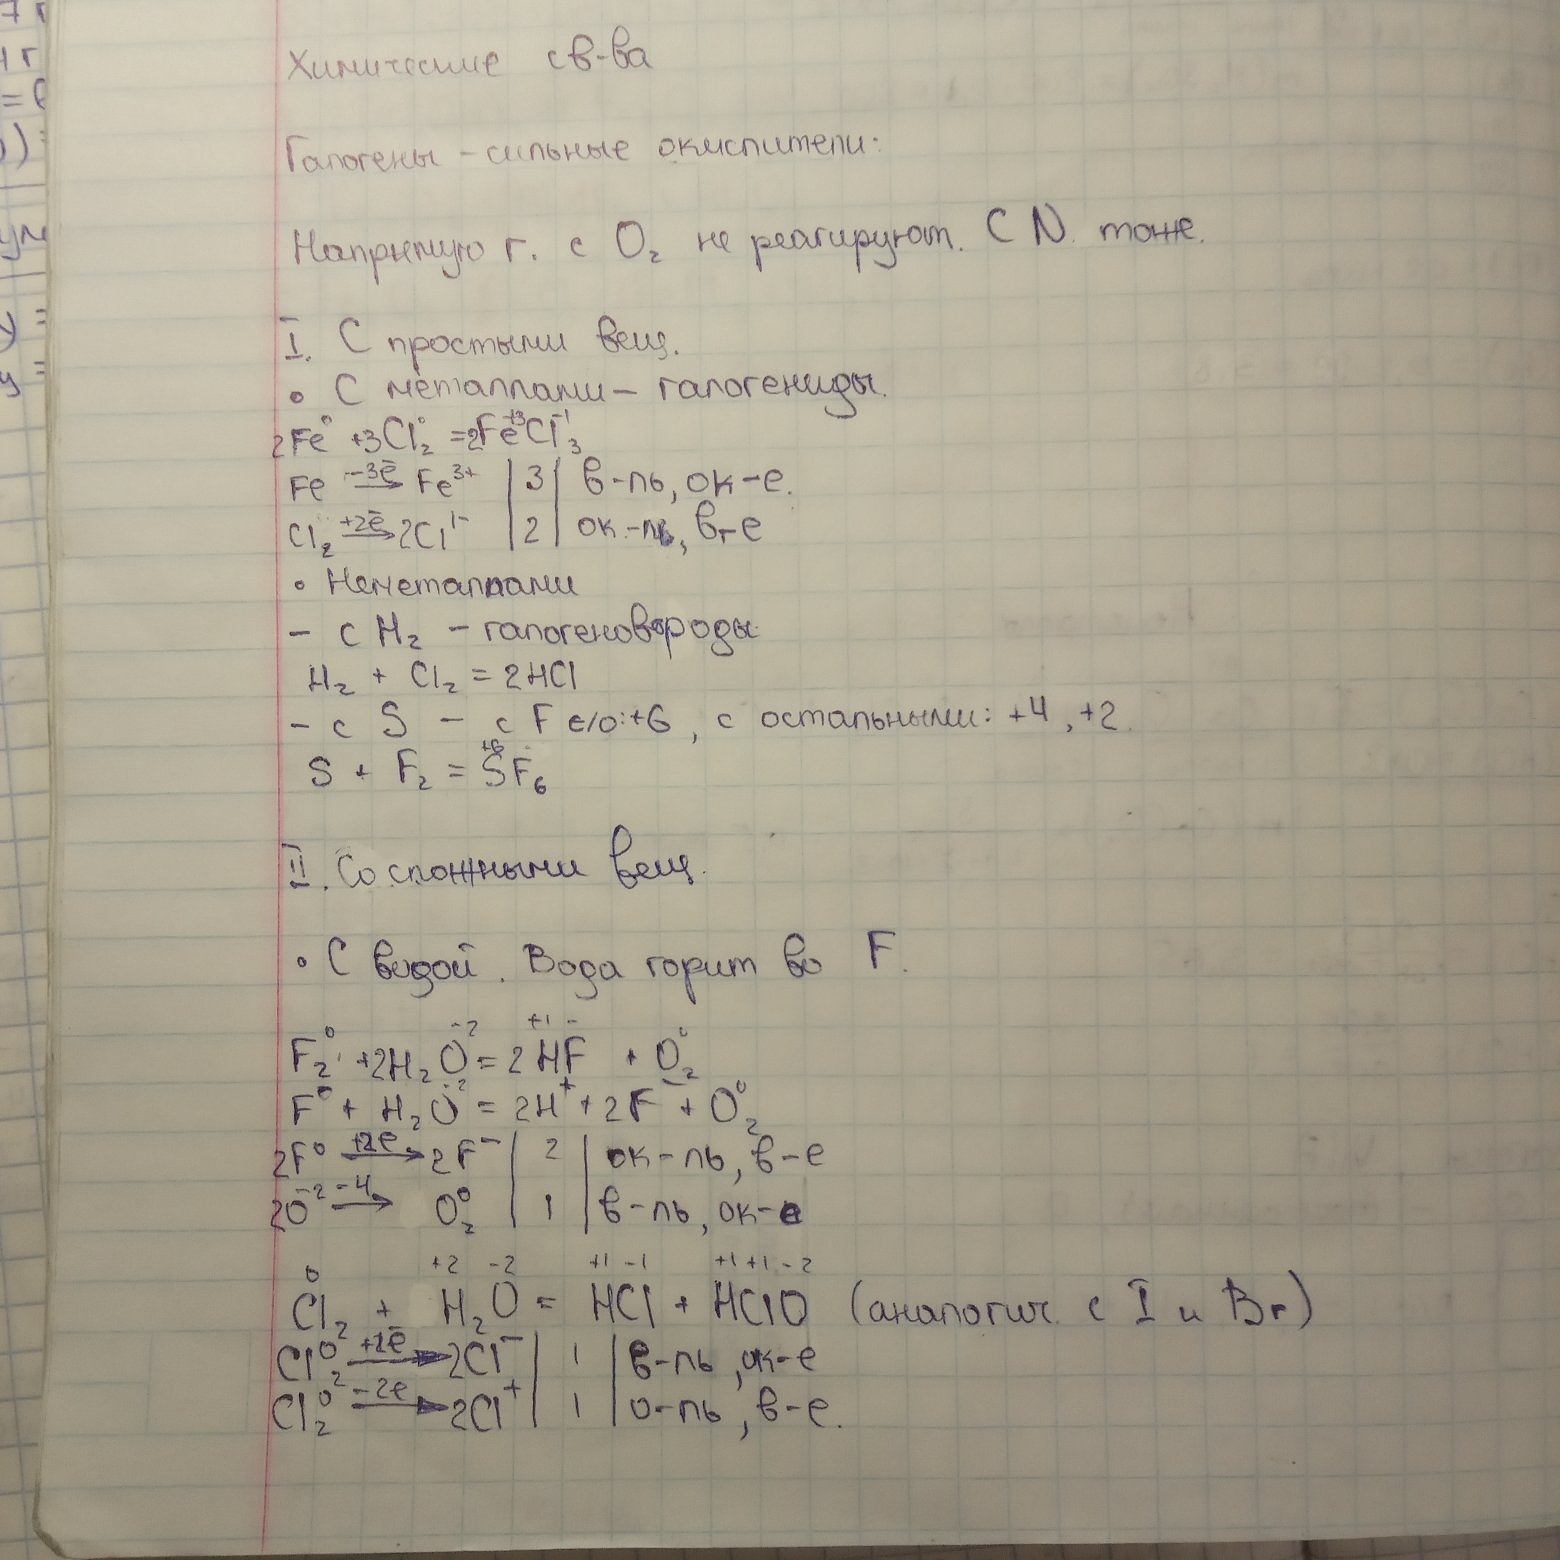 Химические св-ва
Галогены - сильные окислители:
Напрямую г. с O₂ не реагируют. С N. тоже.
I. С простыми вещ.
• С металлами – галогениды.
2Fe⁰ + 3Cl₂⁰ = 2Fe⁺³Cl₃⁻¹
Fe –3ē→ Fe³⁺ | 3 | в-ль, ок-е.
Cl₂ +2ē→ 2Cl¹⁻ | 2 | ок-ль, в-е
• Неметаллами
– с H₂ – галогеновороды
H₂ + Cl₂ = 2HCl
– с S – с F с/о:+6, с остальными: +4, +2.
S + F₂ = S⁺⁶F₆
II. Со сложными вещ.
• С водой. Вода горит во F.
F₂⁰ + 2H₂O⁻² = 2H⁺¹F⁻ + O₂⁰
F⁰ + H₂O⁻² = 2H⁺ + 2F⁻ + O₂⁰
2F⁰ +2e→ 2F⁻ | 2 | ок-ль, в-е
2O⁻² –4→ O₂⁰ | 1 | в-ль, ок-е
Cl₂⁰ + H₂⁺²O⁻² = H⁺¹Cl⁻¹ + H⁺¹Cl⁺¹O⁻² (аналогич. с I и Br)
Cl₂⁰ +2ē→ 2Cl⁻ | 1 | в-ль, ок-е
Cl₂⁰ –2e→ 2Cl⁺ | 1 | о-ль, в-е.